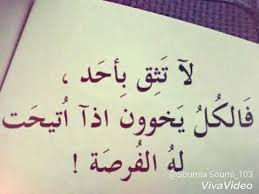 لآ تَثِق بِأحَد ،
فَالكُلُ يَخوون اذآ اُتيحَت
لهُ الفُرصَة !
@Soumia Soumi_103
VivaVideo